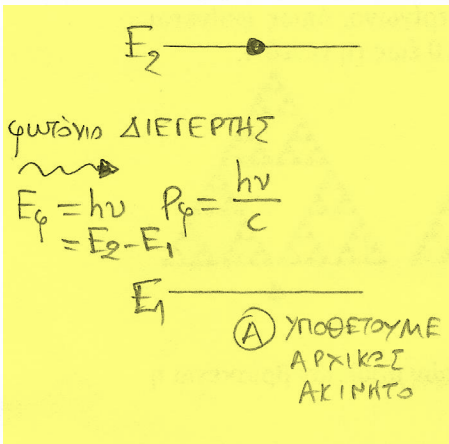 E₂
φωτόνιο ΔΙΕΓΕΡΤΗΣ
E_φ = hν   P_φ = hν/c
= E₂ - E₁
E₁
Ⓐ ΥΠΟΘΕΤΟΥΜΕ
ΑΡΧΙΚΩΣ
ΑΚΙΝΗΤΟ